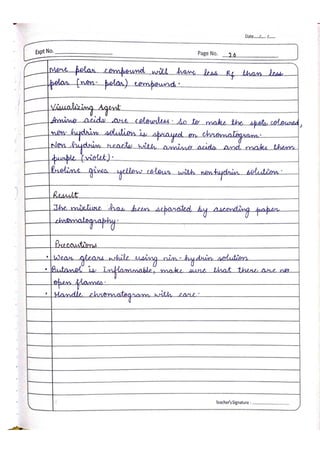 Date..../..... /......
Expt No. ____________
Page No. 26
More polar compound will have less Rf than less
polar (non-polar) compound.
Visualizing Agent
Amino acids are colourless. So to make the spots coloured,
non hydrin solution is sprayed on chromatogram.
Non hydrin reacts with amino acids and make them
purple (violet).
Proline gives yellow colour with non hydrin solution.
Result
The mixture has been separated by ascending paper
chromatography.
Precautions
• Wear gloars while using nin-hydrin solution
• Butanol is Inflammable, make sure that there are no
open flames.
• Handle chromatogram with care.
Teacher's Signature : ____________